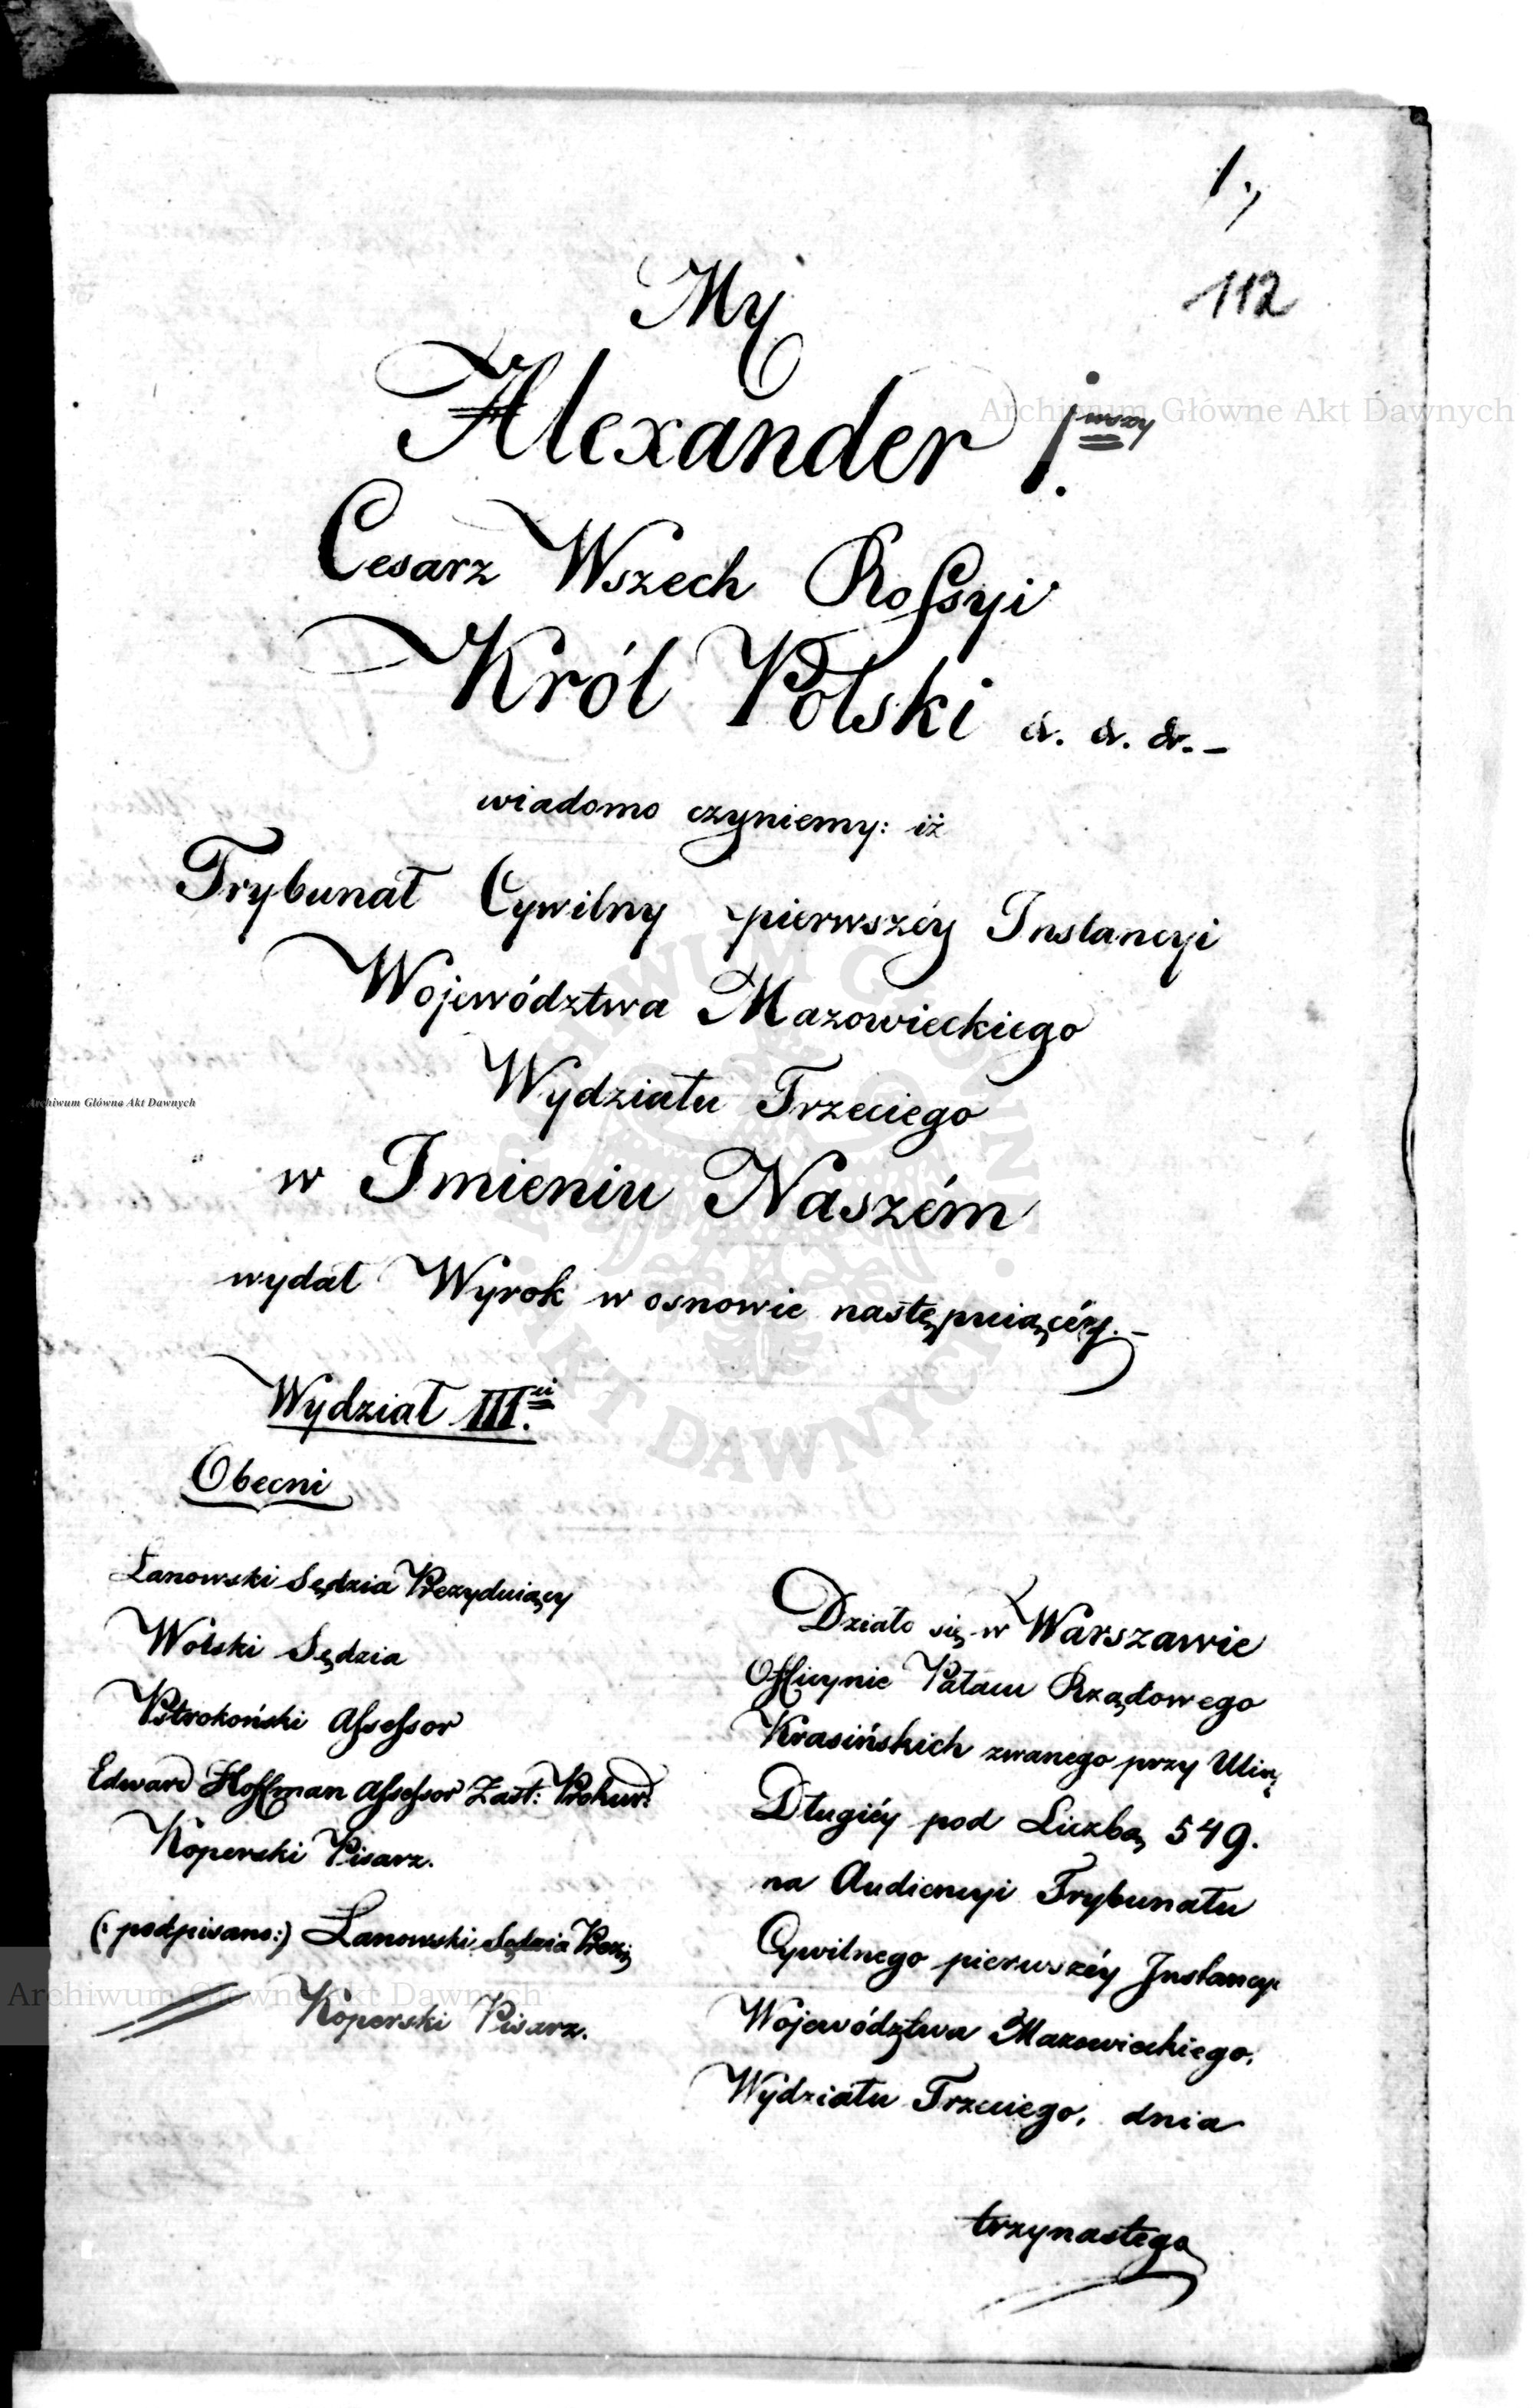 1.,
112
My
Alexander I.wszy
Cesarz Wszech Rossyi
Król Polski &. &. &. –
wiadomo czyniemy: iż
Trybunał Cywilny pierwszéy Instancyi
Województwa Mazowieckiego
Wydziału Trzeciego
w Imieniu Naszém
wydał Wyrok w osnowie następuiącéy. –
Wydział III.ci
Obecni
Łanowski Sędzia Prezyduiący
Wolski Sędzia
Pstrokoński Assessor
Edward Hoffman Assessor Zast: Prokur:
Koperski Pisarz.
(: podpisano:) Łanowski Sędzia Prez:
Koperski Pisarz.
Działo się w Warszawie
Officynie Pałacu Rządowego
Krasińskich zwanego przy Ulicy
Długiéy pod Liczbą 549.
na Audiencyi Trybunału
Cywilnego pierwszéy Instancyi
Województwa Mazowieckiego,
Wydziału Trzeciego, dnia
trzynastego
Archiwum Główne Akt Dawnych
Archiwum Główne Akt Dawnych
Archiwum Główne Akt Dawnych
ARCHIWUM GŁÓWNE · AKT DAWNYCH ·